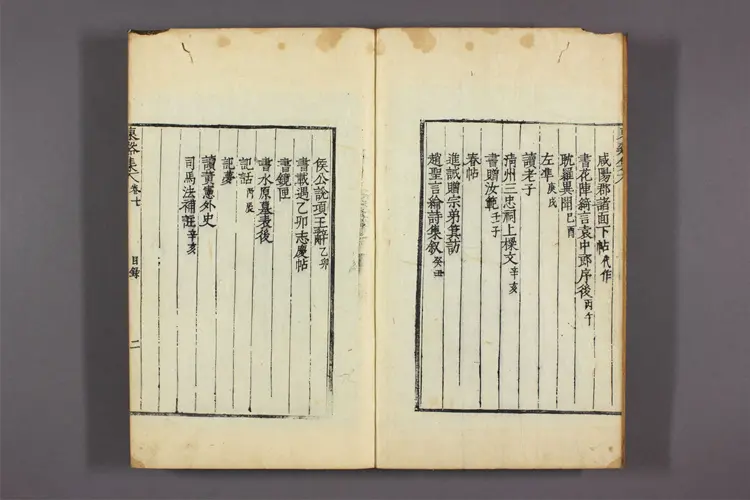 咸陽郡諸面下帖代作
書花陣綺言袁中郎序後丙午
耽羅異聞己酉
左準庚戌
讀老子
淸州三忠祠上樑文辛亥
書贈汝範壬子
春帖
進誡贈宗弟
趙聖言繪詩集叙癸丑
侯公說項王辭乙卯
書載遇乙卯志慶帖
書鏡匣
書水原墓表後
記話丙辰
記夢
讀黃憲外史
司馬法補註辛亥
集 卷七
目錄
二